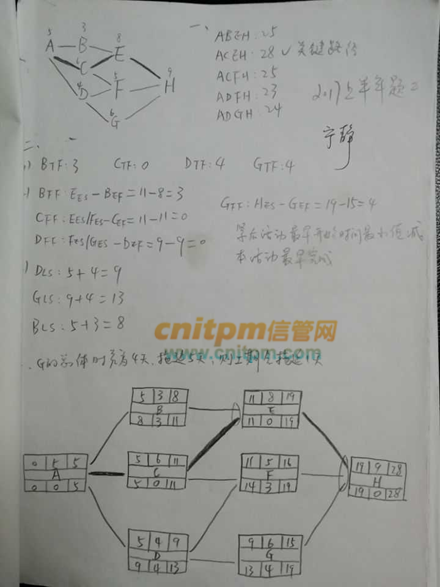 3
5 B 8
A E
C
6
4 5 9
D F H
6
G
一、
ABEH: 25
ACEH: 28 √ 关键路径
ACFH: 25
ADFH: 23
ADGH: 24
2017上半年题二
宁静
二、一
BTF: 3 CTF: 0 DTF: 4 GTF: 4
BFF: EES-BEF=11-8=3
CFF: EES/FES-CEF=11-11=0
DFF: FES/GES-DEF=9-9=0
GFF: HES-GEF=19-15=4
紧后活动最早开始时间最小值减
本活动最早完成
DLS: 5+4=9
GLS: 9+4=13
BLS: 5+3=8
cnitpm信管网
www.cnitpm.com
G的总体时差为4天,拖延5天,则工期会拖延1天
5 3 8
B
8 3 11
11 8 19
E
11 0 19
0 5 5
A
0 0 5
5 6 11
C
5 0 11
11 5 16
F
14 3 19
19 9 28
H
19 0 28
5 4 9
D
9 4 13
9 6 15
G
13 4 19